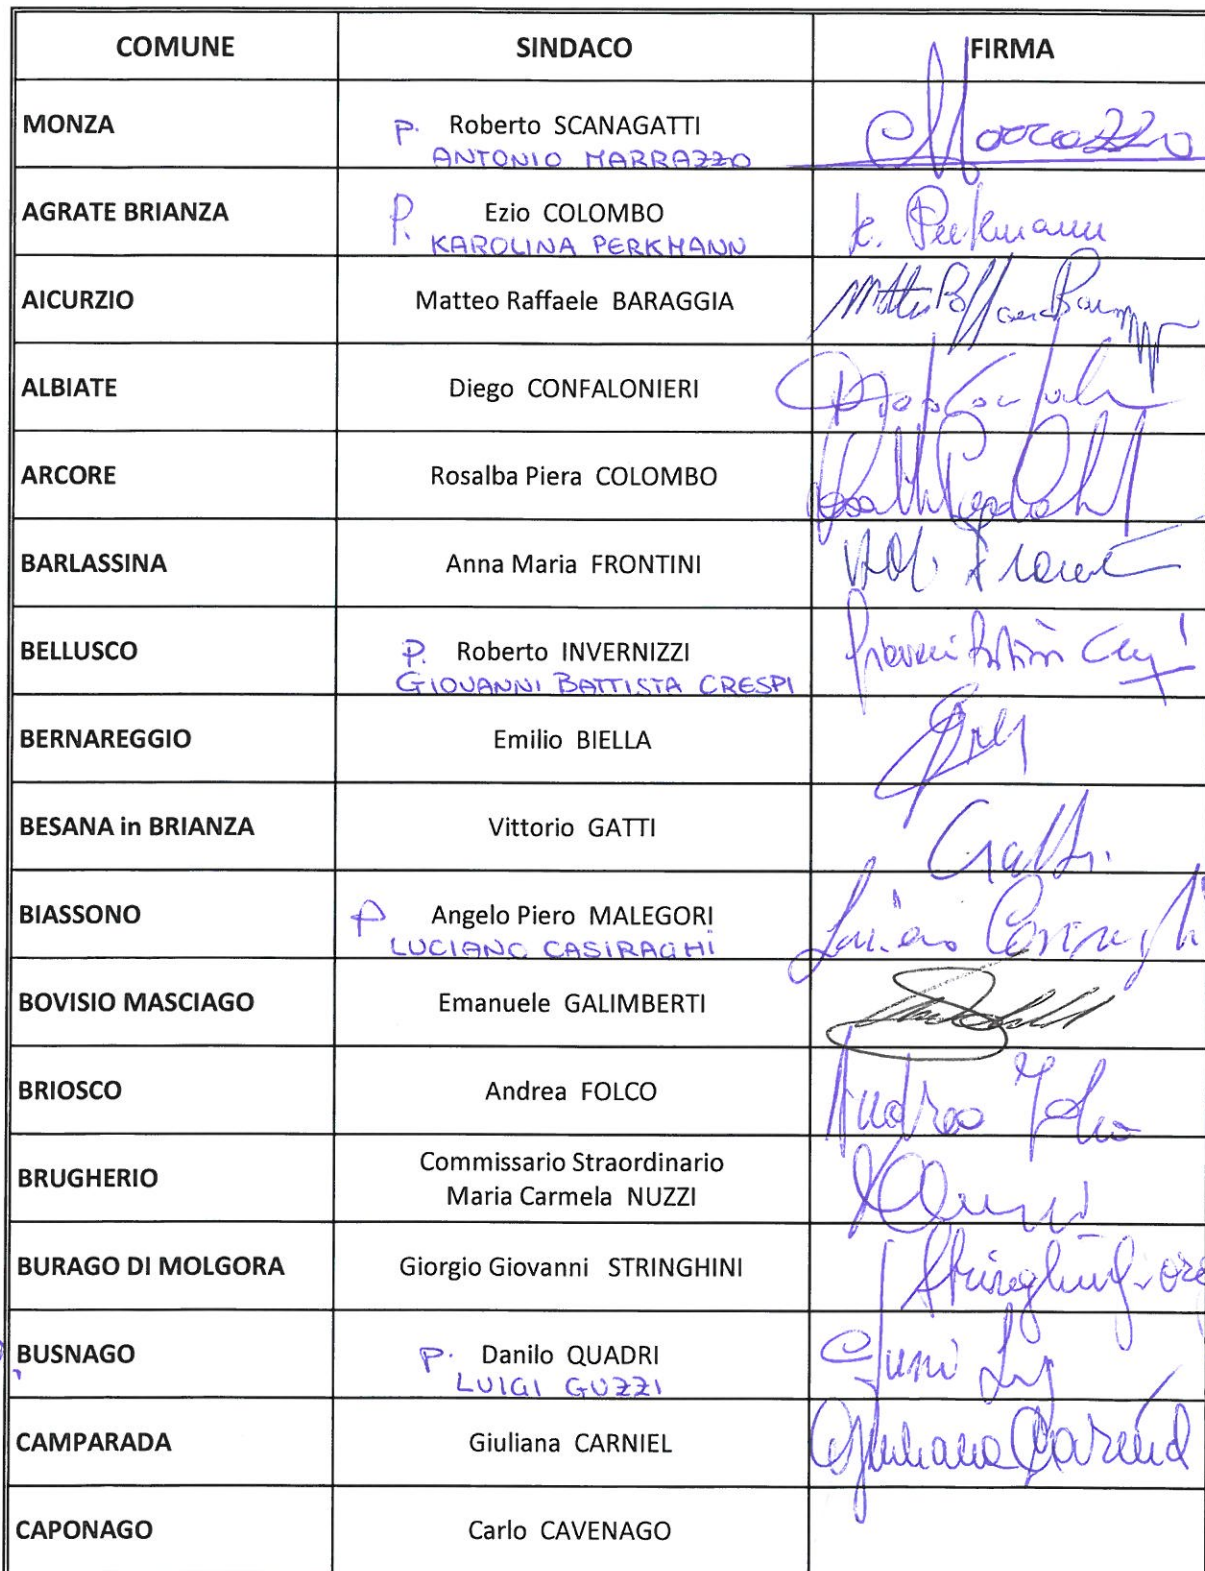 COMUNE SINDACO FIRMA
MONZA P. Roberto SCANAGATTI Marrazzo
ANTONIO MARRAZZO
AGRATE BRIANZA P. Ezio COLOMBO K. Perkmann
KAROLINA PERKMANN
AICURZIO Matteo Raffaele BARAGGIA
ALBIATE Diego CONFALONIERI
ARCORE Rosalba Piera COLOMBO
BARLASSINA Anna Maria FRONTINI
BELLUSCO P. Roberto INVERNIZZI
GIOVANNI BATTISTA CRESPI
BERNAREGGIO Emilio BIELLA
BESANA in BRIANZA Vittorio GATTI Gatti
BIASSONO P Angelo Piero MALEGORI Luciano Casiraghi
LUCIANO CASIRAGHI
BOVISIO MASCIAGO Emanuele GALIMBERTI
BRIOSCO Andrea FOLCO Andrea Folco
BRUGHERIO Commissario Straordinario
Maria Carmela NUZZI
BURAGO DI MOLGORA Giorgio Giovanni STRINGHINI
BUSNAGO P. Danilo QUADRI
LUIGI GUZZI
CAMPARADA Giuliana CARNIEL Giuliana Carniel
CAPONAGO Carlo CAVENAGO